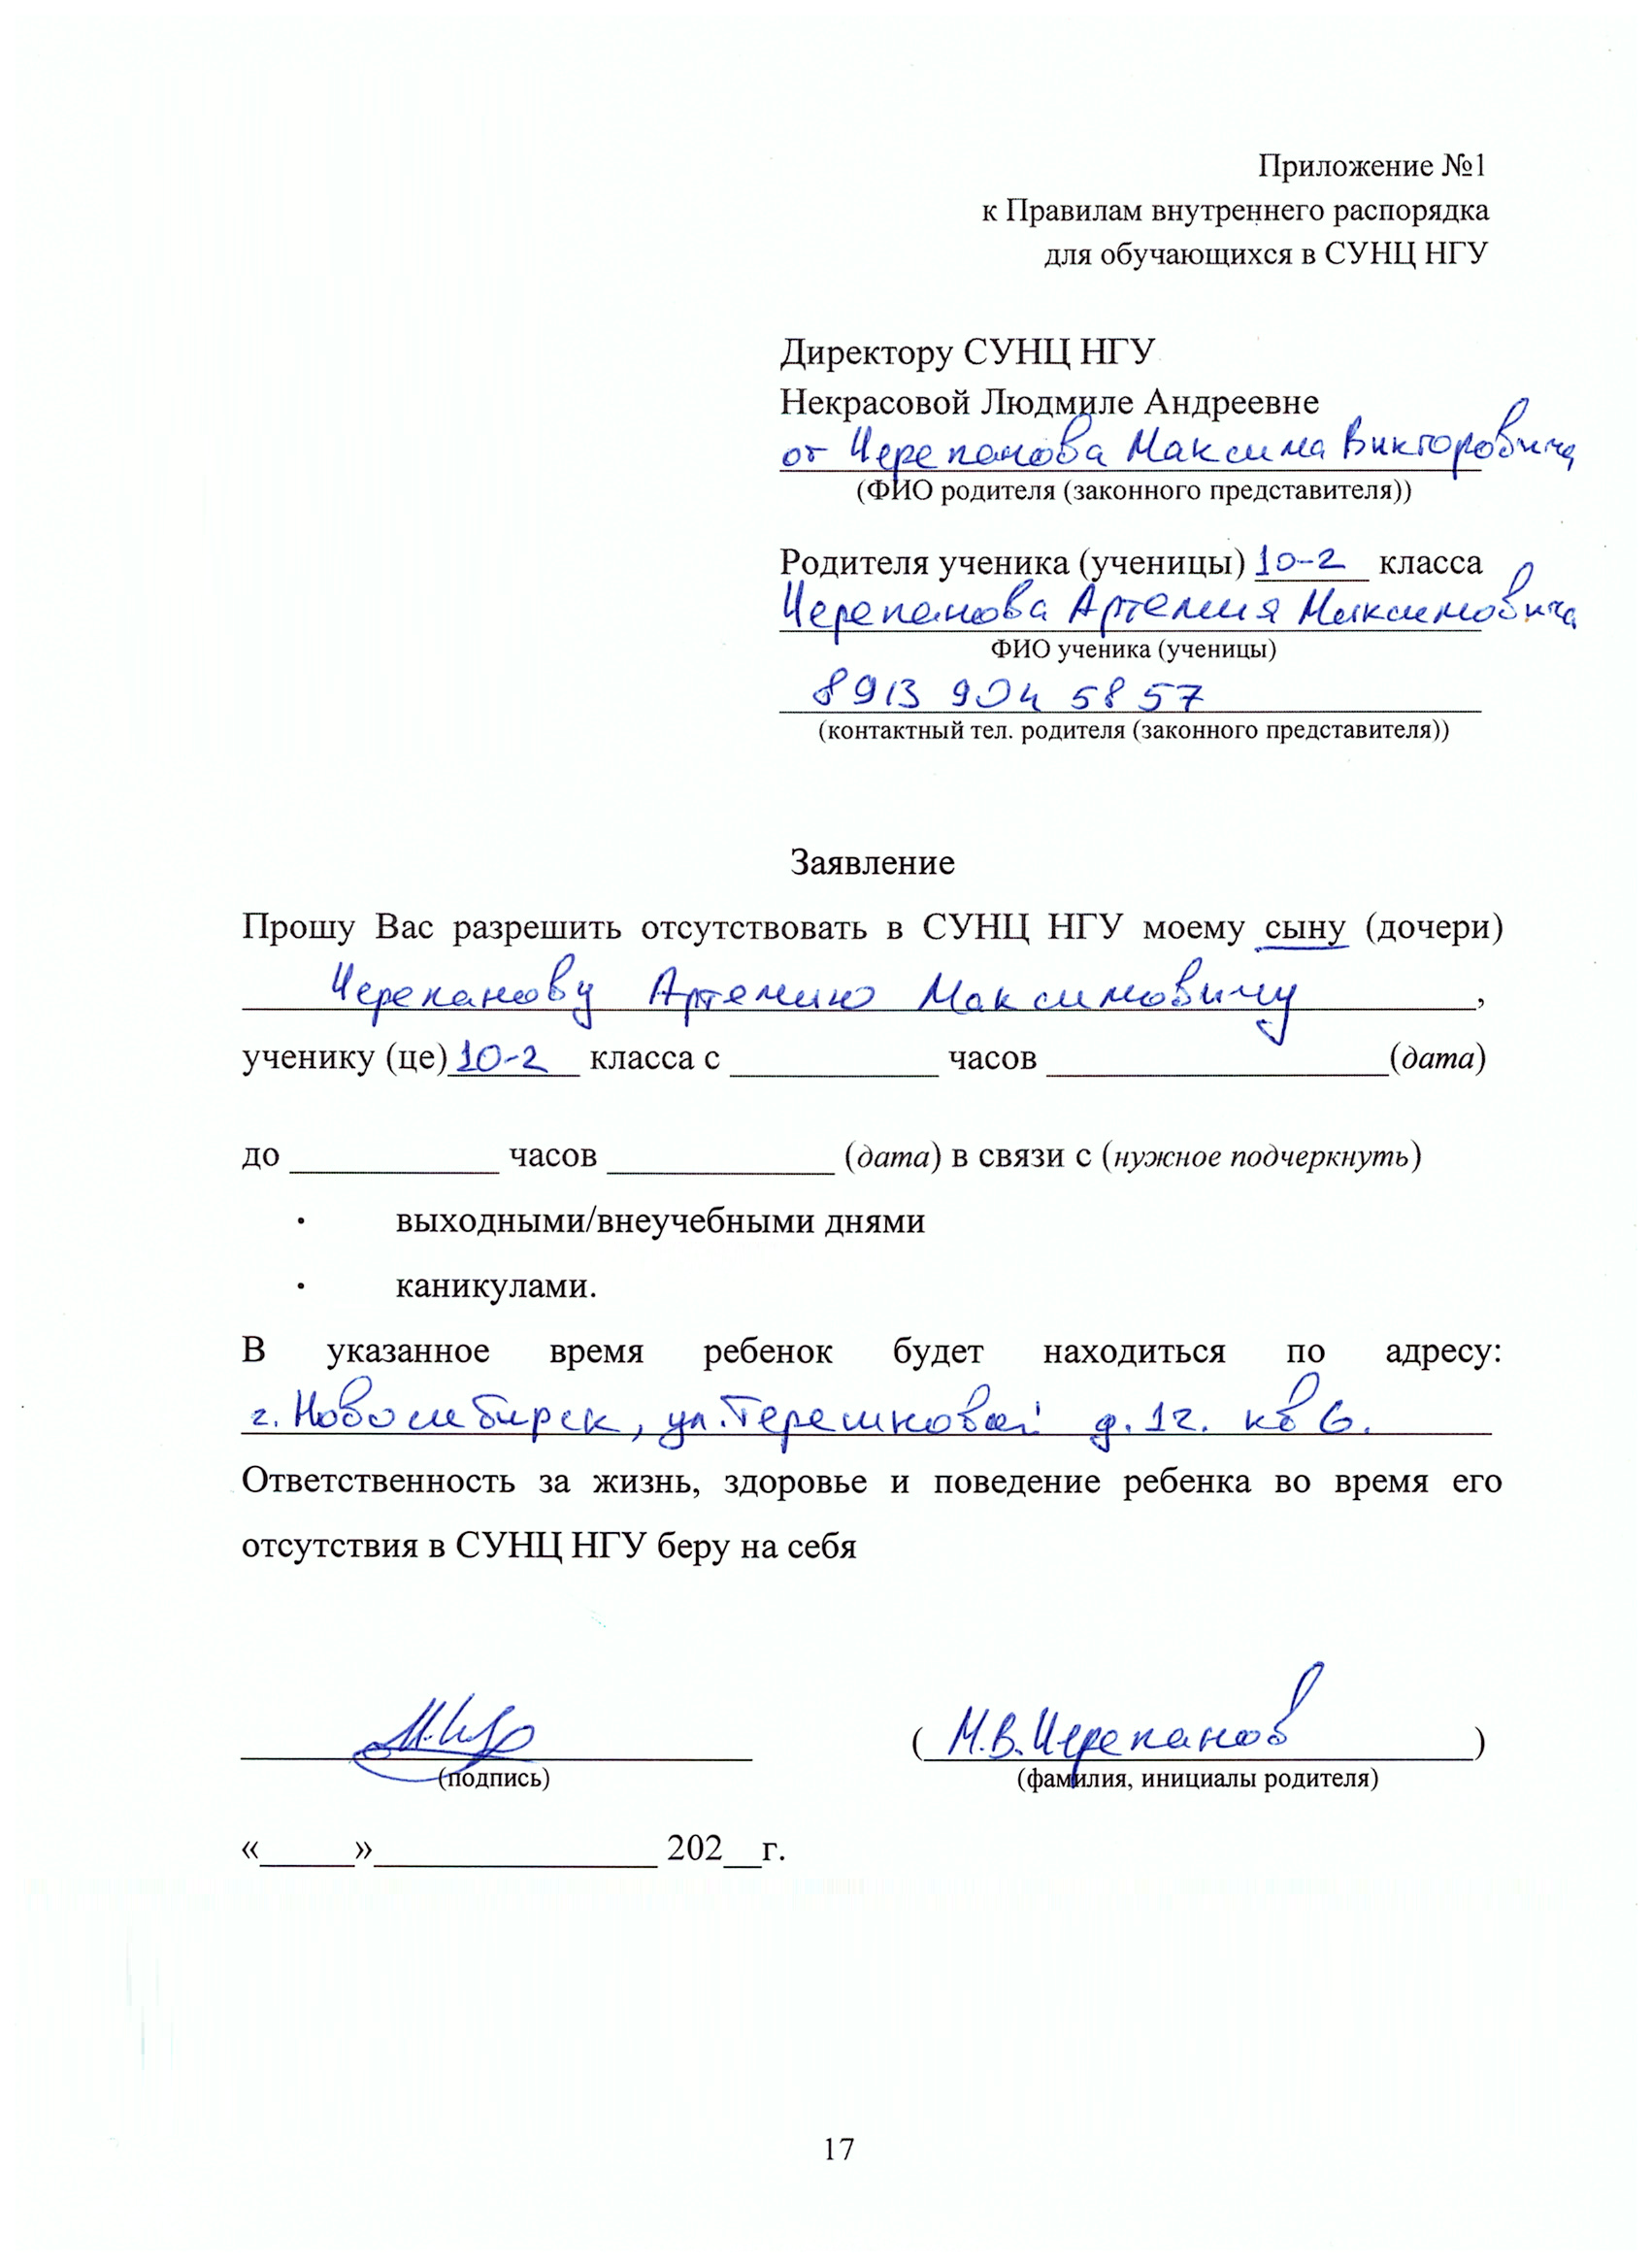 Приложение №1
к Правилам внутреннего распорядка
для обучающихся в СУНЦ НГУ
Директору СУНЦ НГУ
Некрасовой Людмиле Андреевне
от Черепанова Максима Викторовича
(ФИО родителя (законного представителя))
Родителя ученика (ученицы) 10-2 класса
Черепанова Артемия Максимовича
ФИО ученика (ученицы)
8 913 904 58 57
(контактный тел. родителя (законного представителя))
Заявление
Прошу Вас разрешить отсутствовать в СУНЦ НГУ моему сыну (дочери)
Черепанову Артемию Максимовичу,
ученику (це) 10-2 класса с ____________ часов ____________________(дата)
до ____________ часов _____________ (дата) в связи с (нужное подчеркнуть)
• выходными/внеучебными днями
• каникулами.
В указанное время ребенок будет находиться по адресу:
г. Новосибирск, ул. Терешковой д. 12. кв 6.
Ответственность за жизнь, здоровье и поведение ребенка во время его
отсутствия в СУНЦ НГУ беру на себя
(М.В. Черепанов)
(подпись) (фамилия, инициалы родителя)
«_____»________________ 202__г.
17